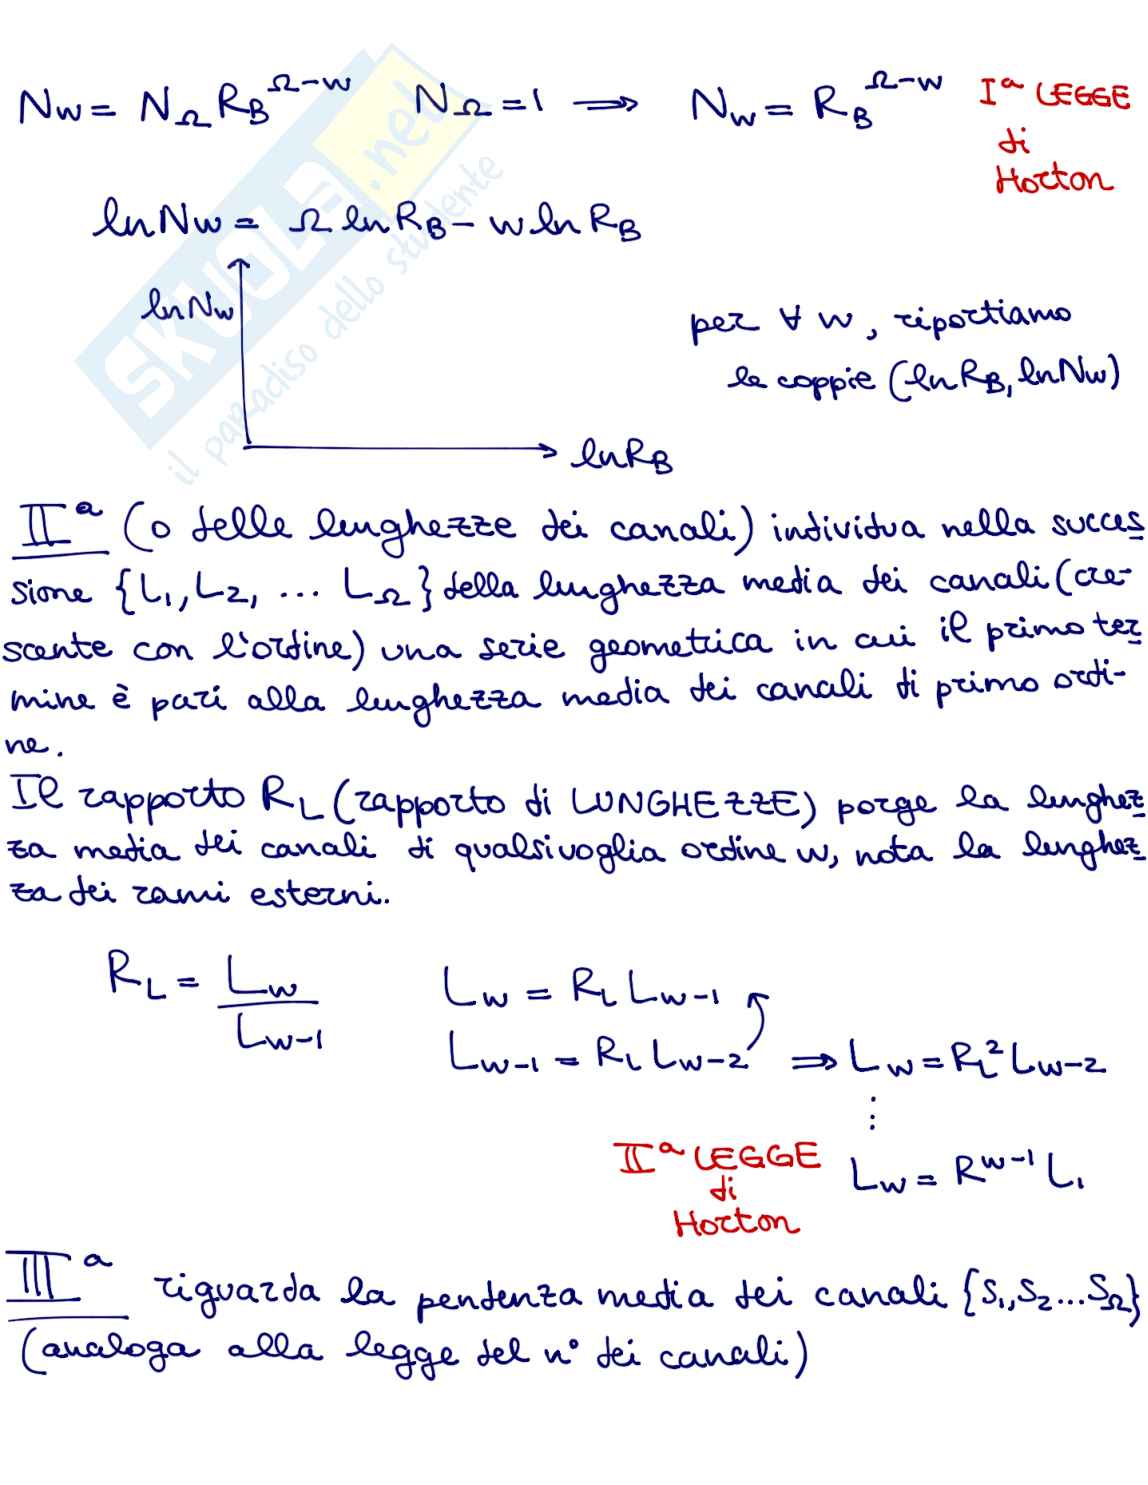 Nw = NΩ RB^Ω-w NΩ = 1 ⟹ Nw = RB^Ω-w Iª LEGGE
di
Horton
ln Nw = Ω ln RB - w ln RB
ln Nw
per ∀ w, riportiamo
le coppie (ln RB, ln Nw)
ln RB
SKUOLA.net
il paradiso dello studente
IIª (o delle lunghezze dei canali) individua nella succes
sione {L1, L2, ... LΩ} della lunghezza media dei canali (cre-
scente con l'ordine) una serie geometrica in cui il primo ter
mine è pari alla lunghezza media dei canali di primo ordi-
ne.
Il rapporto RL (rapporto di LUNGHEZZE) porge la lunghez
za media dei canali di qualsivoglia ordine w, nota la lunghez
za dei rami esterni.
RL = Lw / Lw-1
Lw = RL Lw-1
Lw-1 = RL Lw-2 ⟹ Lw = RL² Lw-2
⋮
IIª LEGGE
di
Horton
Lw = R^w-1 L1
IIIª riguarda la pendenza media dei canali {S1, S2 ... SΩ}
(analoga alla legge del n° dei canali)